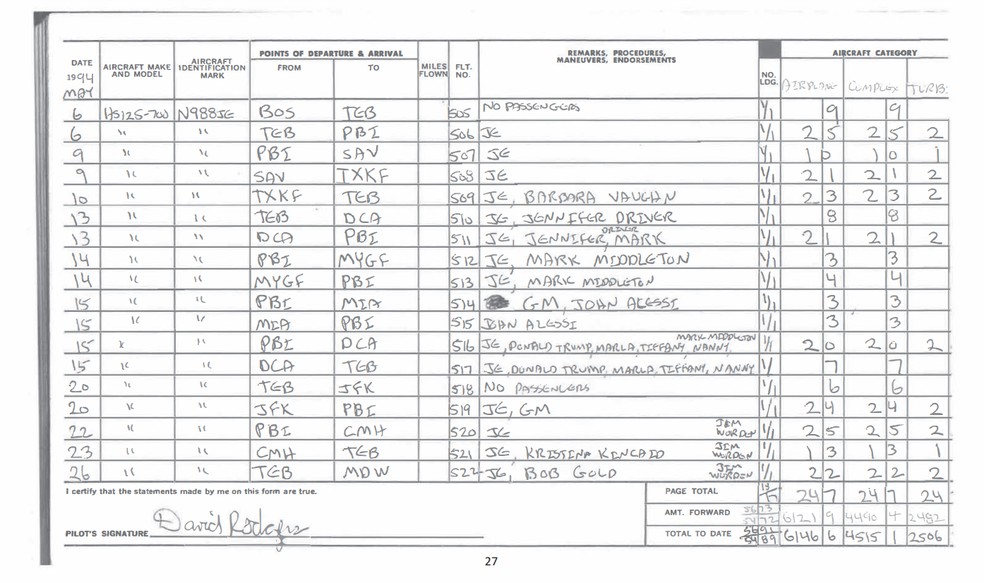 DATE 1994 MAY | AIRCRAFT MAKE AND MODEL | AIRCRAFT IDENTIFICATION MARK | POINTS OF DEPARTURE & ARRIVAL FROM | TO | MILES FLOWN | FLT. NO. | REMARKS, PROCEDURES, MANEUVERS, ENDORSEMENTS | NO. LDG. | AIRCRAFT CATEGORY AIRPLANE | COMPLEX | TURB.
6 HS125-700 N988JE BOS TEB 505 NO PASSENGERS 1/1 9 9
6 " " TEB PBI 506 JE 1/1 2 5 2 5 2
9 " " PBI SAV 507 JE 1/1 1 0 1 0 1
9 " " SAV TXKF 508 JE 1/1 2 1 2 1 2
10 " " TXKF TEB 509 JE, BARBARA VAUGHN 1/1 2 3 2 3 2
13 " " TEB DCA 510 JE, JENNIFER DRIVER 1/1 8 8
13 " " DCA PBI 511 JE, JENNIFER DRIVER, MARK 1/1 2 1 2 1 2
14 " " PBI MYGF 512 JE, MARK MIDDLETON 1/1 3 3
14 " " MYGF PBI 513 JE, MARK MIDDLETON 1/1 4 4
15 " " PBI MIA 514 GM, JOHN ALESSI 1/1 3 3
15 " " MIA PBI 515 JOHN ALESSI 1/1 3 3
15 " " PBI DCA 516 JE, DONALD TRUMP, MARLA, TIFFANY, NANNY, MARK MIDDLETON 1/1 2 0 2 0 2
15 " " DCA TEB 517 JE, DONALD TRUMP, MARLA, TIFFANY, NANNY 1/ 7 7
20 " " TEB JFK 518 NO PASSENGERS 1/1 6 6
20 " " JFK PBI 519 JE, GM 1/1 2 4 2 4 2
22 " " PBI CMH 520 JE JIM WORDEN 1/1 2 5 2 5 2
23 " " CMH TEB 521 JE, KRISTINA KINCAID JIM WORDEN 1/1 1 3 1 3 1
26 " " TEB MDW 522 JE, BOB GOLD JIM WORDEN 1/1 2 2 2 2 2
I certify that the statements made by me on this form are true.
PAGE TOTAL 24 7 24 7 24
AMT. FORWARD 6121 9 4490 4 2482
PILOT'S SIGNATURE David Rodgers
TOTAL TO DATE 6146 6 4515 1 2506
27